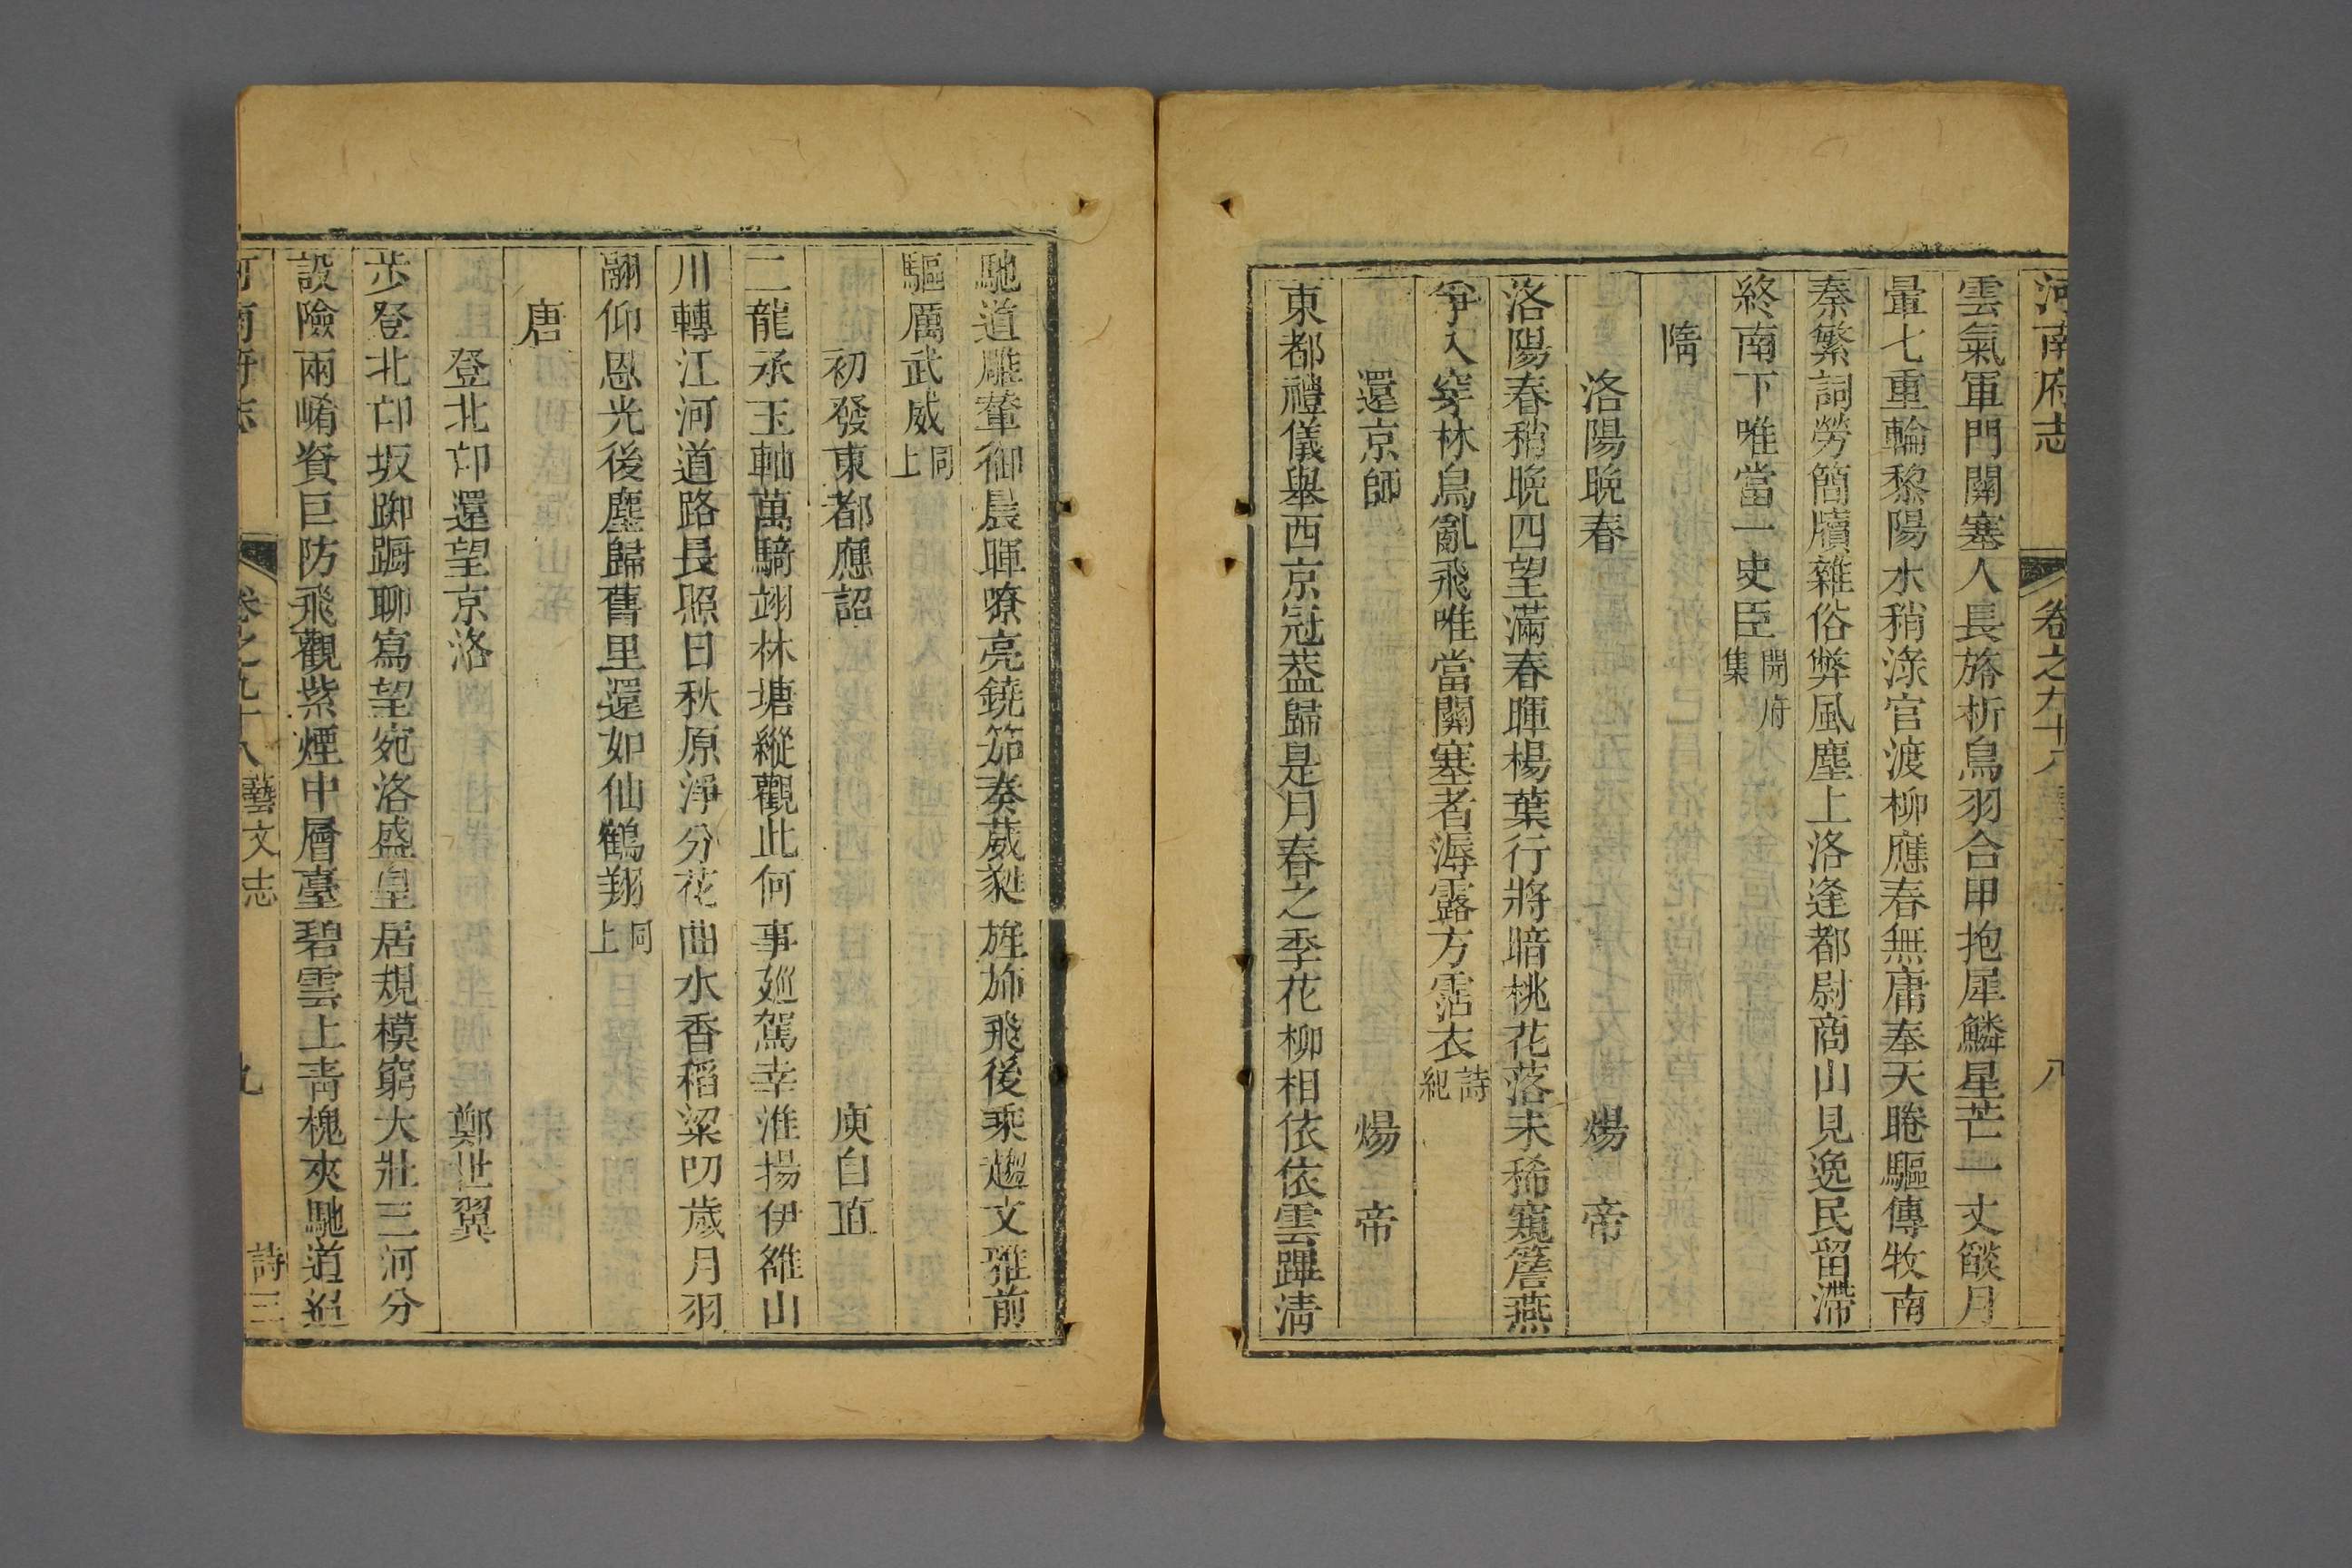 河南府志 卷之九十八 八
雲氣軍門關塞人長旛析鳥羽合甲抱犀鱗星芒一丈燄月
暈七重輪黎陽水稍淥官渡柳應春無庸奉天睠驅傳牧南
秦繁詞勞簡牘雜俗弊風塵上洛逢都尉商山見逸民留滯
終南下唯當一史臣開府集
隋
洛陽晚春 煬帝
洛陽春稍晚四望滿春暉楊葉行將暗桃花落未稀窺簷燕
爭入穿林鳥亂飛唯當關塞者溽露方霑衣詩紀
還京師 煬帝
東都禮儀舉西京冠葢歸是月春之季花柳相依依雲蹕清
馳道雕輦御晨暉嘹亮鐃笳奏葳蕤旌斾飛後乘趨文雅前
驅厲武威同上
初發東都應詔 庾自直
二龍承玉軸萬騎翊林塘縱觀此何事廵駕幸淮揚伊雒山
川轉江河道路長照日秋原淨分花曲水香稻粱叨歲月羽
翮仰恩光後塵歸舊里還如仙鶴翔同上
唐
登北邙還望京洛 鄭世翼
步登北邙坂踟蹰聊寫望宛洛盛皇居規模窮大壯三河分
設險兩崤資巨防飛觀紫煙中層臺碧雲上青槐夾馳道迢
河南府志 卷之九十八 藝文志 九 詩三